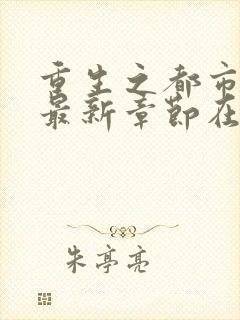 重生之都市
最新章节在
朱亭亮